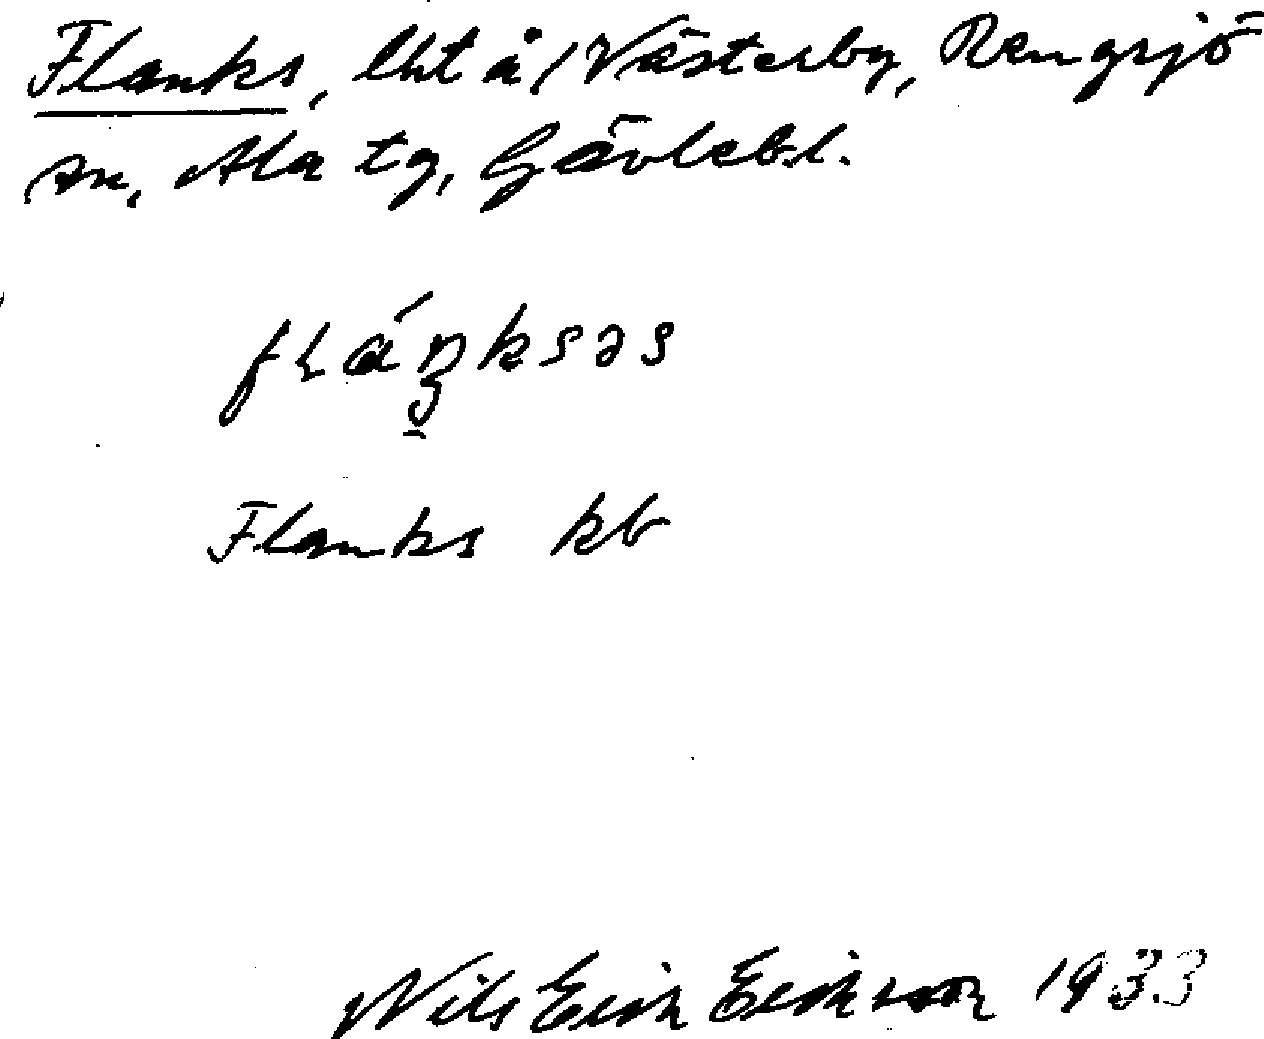 Flanks, lht å/Västerby, Rengsjö
sn, Ala tg, Gävlebl.
fláŋksəs
Flanks kb
Nils Erik Eriksson 1933